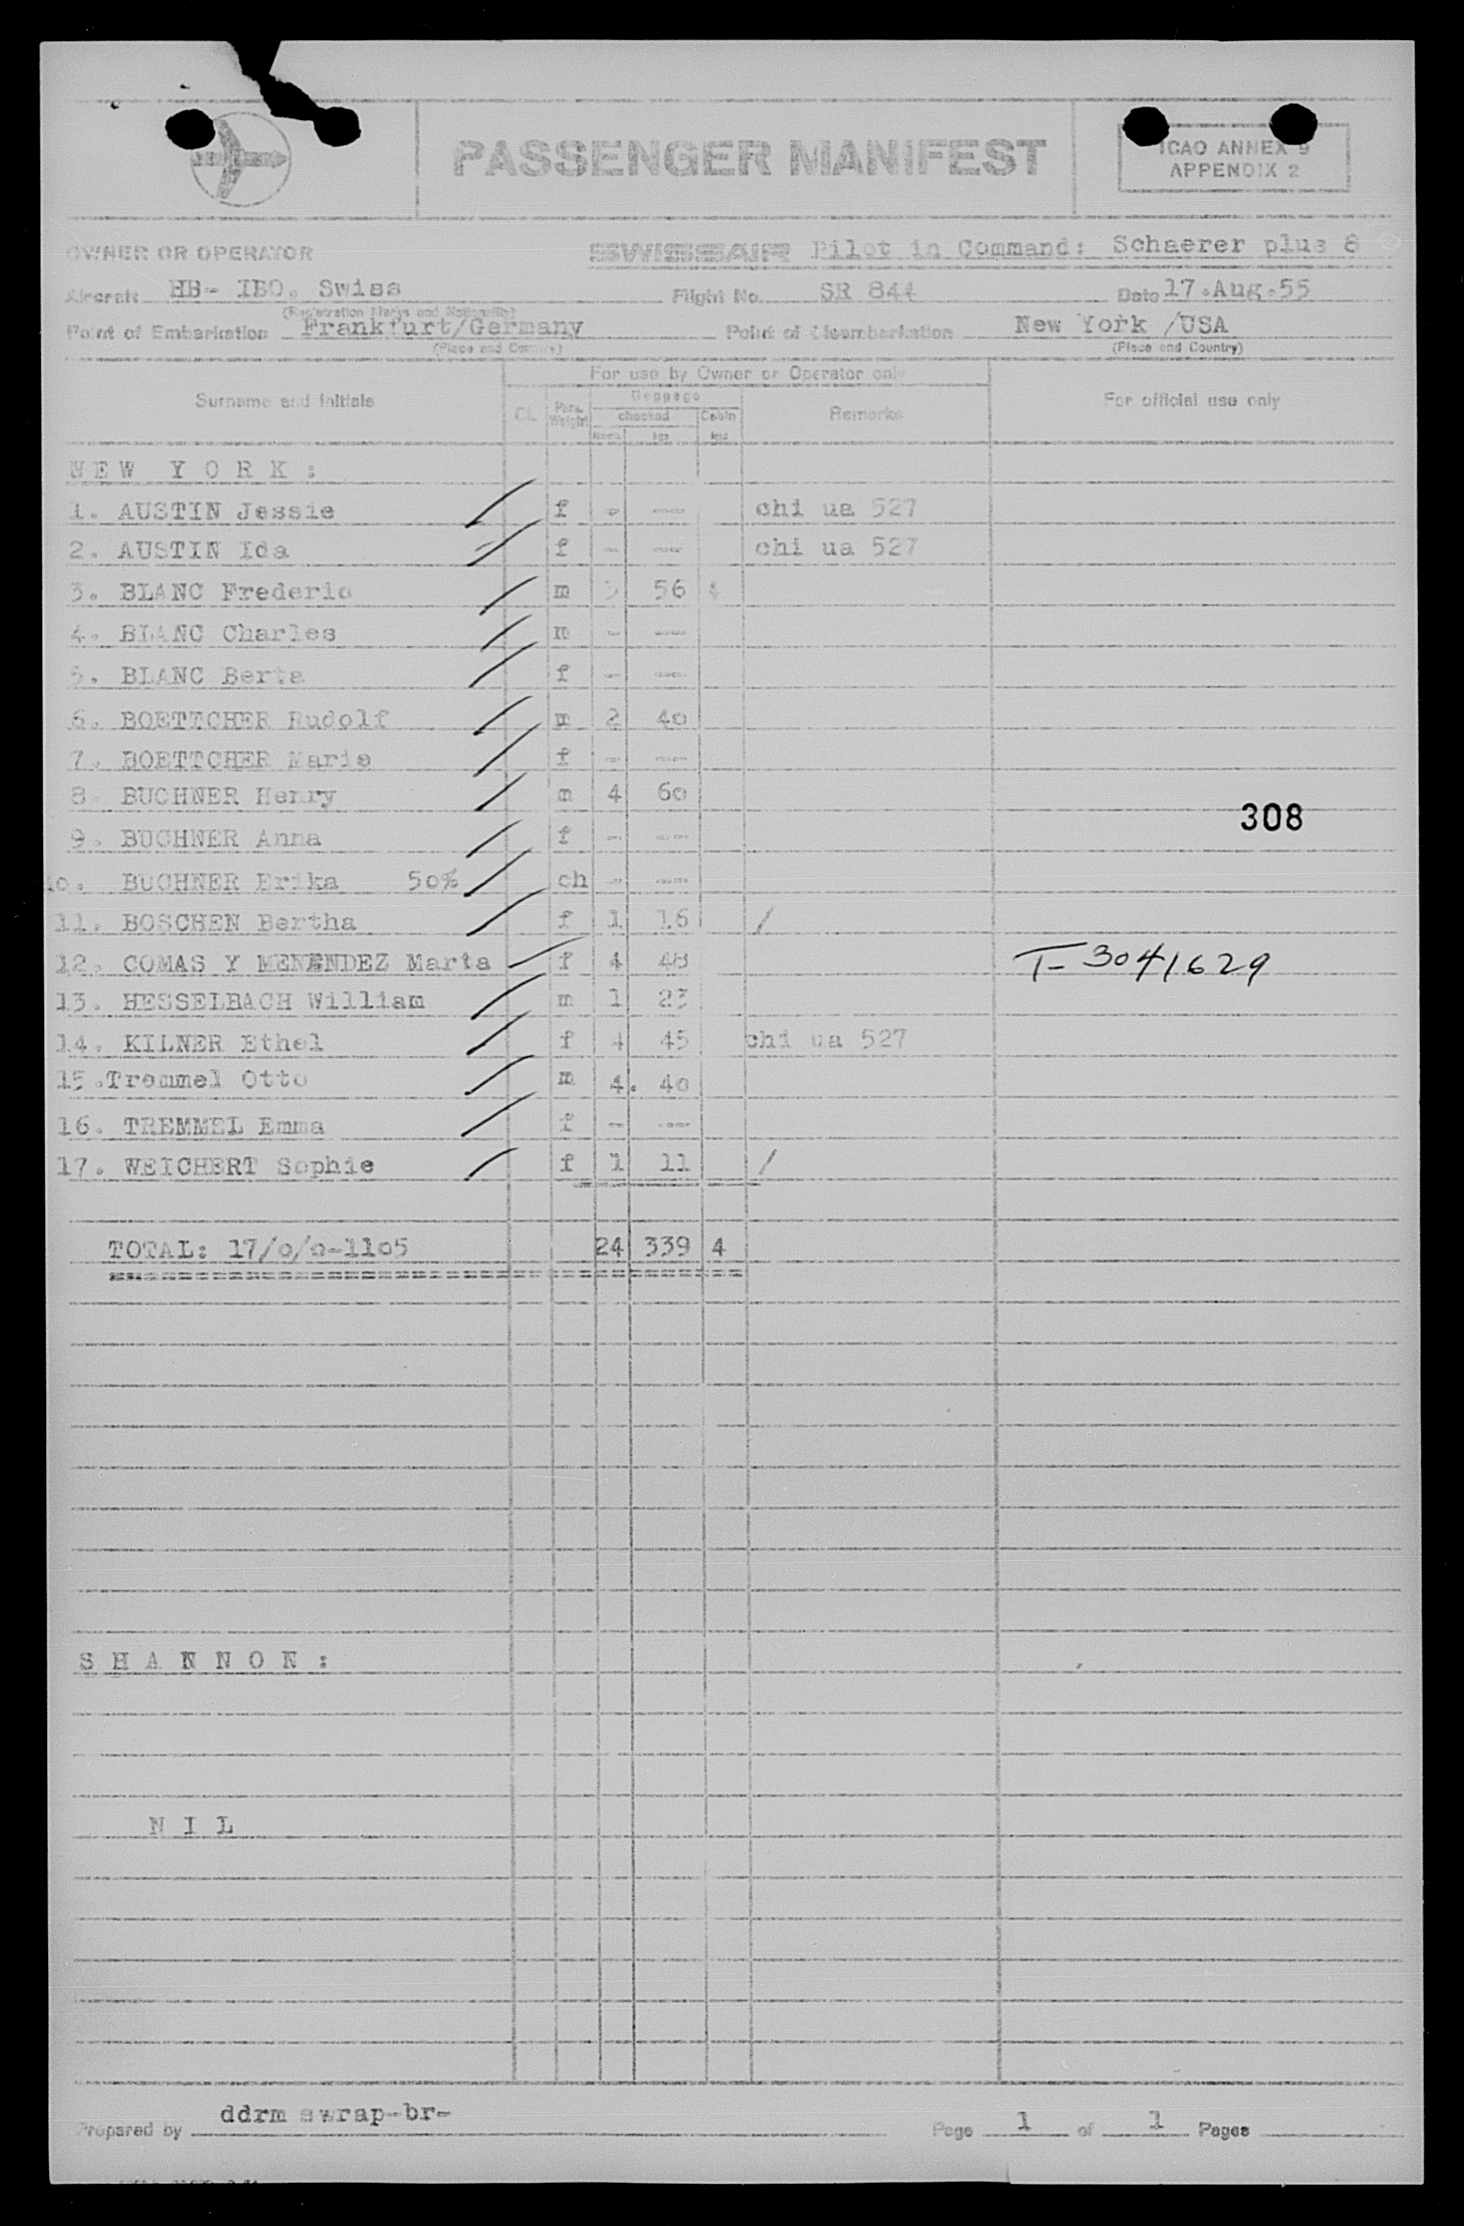 PASSENGER MANIFEST
ICAO ANNEX 9
APPENDIX 2
OWNER OR OPERATOR SWISSAIR Pilot in Command: Schaerer plus 8
Aircraft HB- IBO. Swiss Flight No. SR 844 Date 17.Aug.55
(Registration Marks and Nationality)
Point of Embarkation Frankfurt/Germany Point of Disembarkation New York /USA
(Place and Country) (Place and Country)
For use by Owner or Operator only
Surname and initials CL. Pass. Weight Baggage Remarks For official use only
checked Cabin
kgs kgs
NEW YORK:
1. AUSTIN Jessie f - --- chi ua 527
2. AUSTIN Ida f - --- chi ua 527
3. BLANC Frederic m 3 56 4
4. BLANC Charles m - ---
5. BLANC Berta f - ---
6. BOETTCHER Rudolf m 2 40
7. BOETTCHER Marie f - ---
8. BUCHNER Henry m 4 60
308
9. BUCHNER Anna f - ---
10. BUCHNER Erika 50% ch - ---
11. BOSCHEN Bertha f 1 16 /
12. COMAS Y MENENDEZ Marta f 4 48 T-3041629
13. HESSELBACH William m 1 23
14. KILNER Ethel f 4 45 chi ua 527
15.Tremmel Otto m 4. 40
16. TREMMEL Emma f - ---
17. WEICHERT Sophie f 1 11 /
TOTAL: 17/o/o-1105 24 339 4
SHANNON:
NIL
Prepared by ddrm swrap-br- Page 1 of 1 Pages